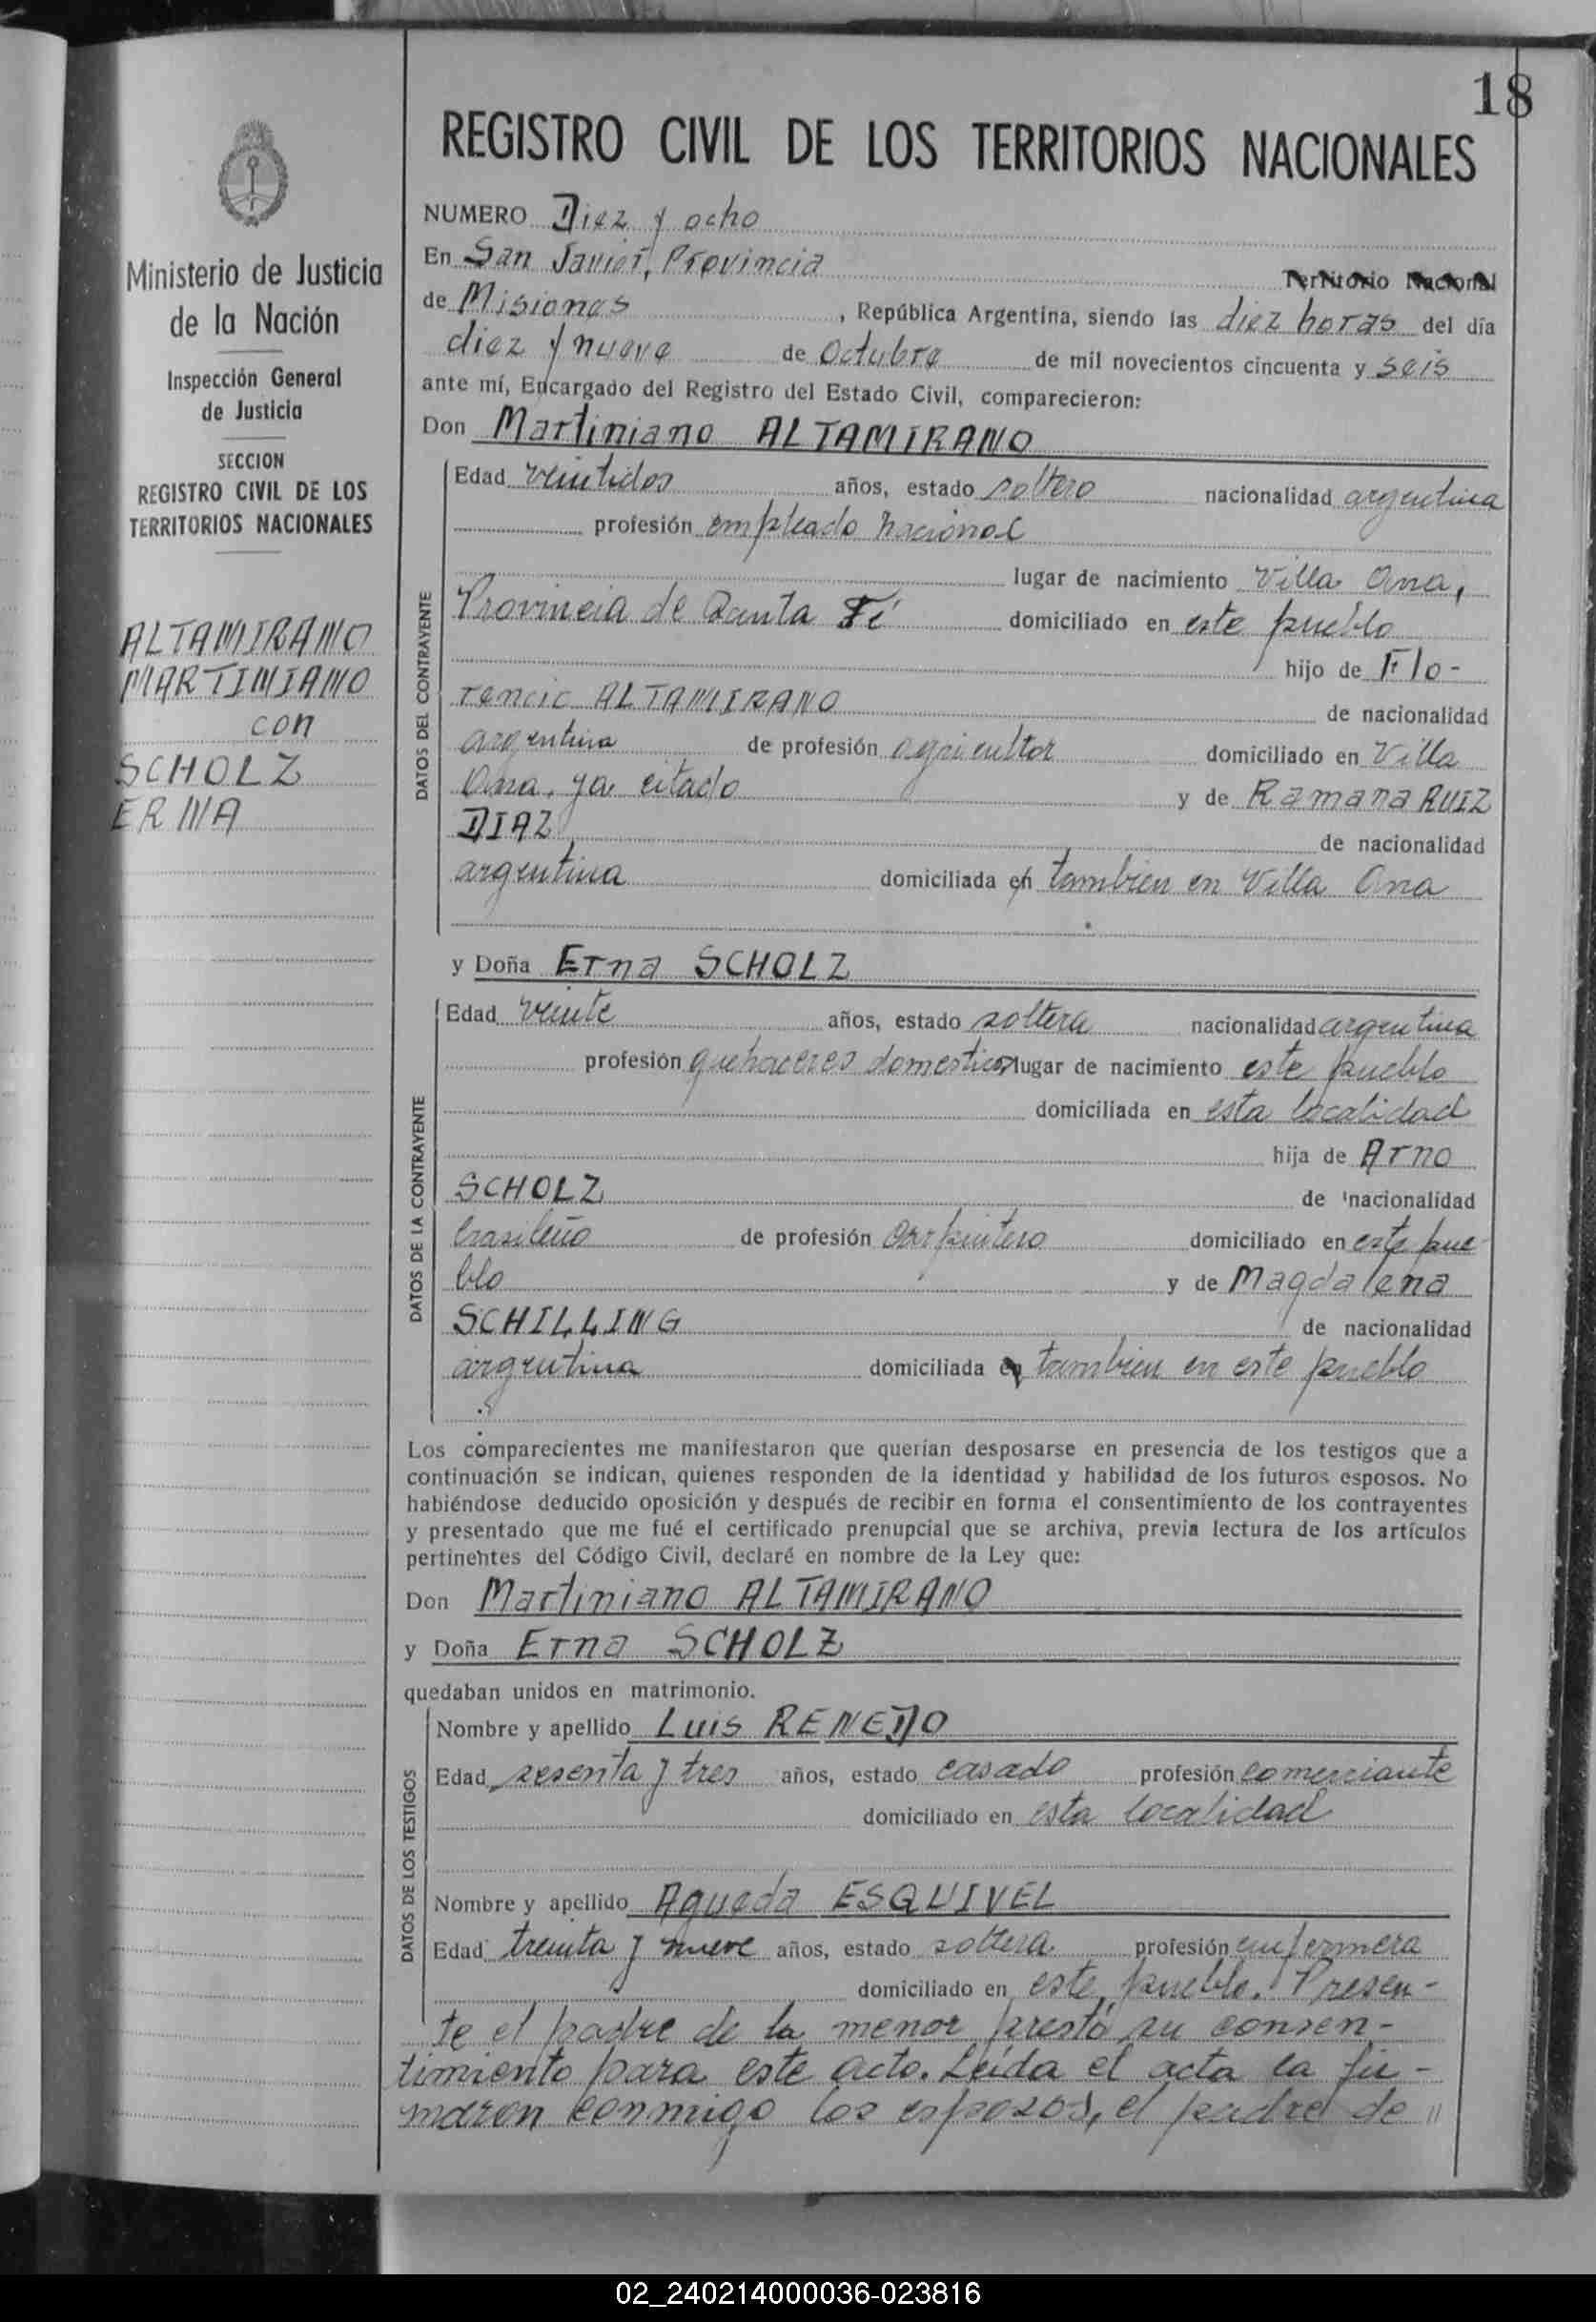 18
REGISTRO CIVIL DE LOS TERRITORIOS NACIONALES
Ministerio de Justicia
de la Nación
Inspección General
de Justicia
SECCION
REGISTRO CIVIL DE LOS
TERRITORIOS NACIONALES
ALTAMIRANO
MARTINIANO
con
SCHOLZ
ERNA
NUMERO Diez y ocho
En San Javier, Provincia Territorio Nacional
de Misiones, República Argentina, siendo las diez horas del día
diez y nueve de Octubre de mil novecientos cincuenta y seis
ante mí, Encargado del Registro del Estado Civil, comparecieron:
Don Martiniano ALTAMIRANO
DATOS DEL CONTRAYENTE
Edad veintidos años, estado soltero nacionalidad argentina
profesión empleado nacional
lugar de nacimiento Villa Ana,
Provincia de Santa Fé domiciliado en este pueblo
hijo de Flo-
rencio ALTAMIRANO de nacionalidad
argentina de profesión agricultor domiciliado en Villa
Ana, ya citado y de Ramana RUIZ
DIAZ de nacionalidad
argentina domiciliada en tambien en Villa Ana
y Doña Erna SCHOLZ
DATOS DE LA CONTRAYENTE
Edad veinte años, estado soltera nacionalidad argentina
profesión quehaceres domesticos lugar de nacimiento este pueblo
domiciliada en esta localidad
hija de Arno
SCHOLZ de nacionalidad
brasileño de profesión carpintero domiciliado en este pue-
blo y de Magdalena
SCHILLING de nacionalidad
argentina domiciliada en tambien en este pueblo
Los comparecientes me manifestaron que querían desposarse en presencia de los testigos que a
continuación se indican, quienes responden de la identidad y habilidad de los futuros esposos. No
habiéndose deducido oposición y después de recibir en forma el consentimiento de los contrayentes
y presentado que me fué el certificado prenupcial que se archiva, previa lectura de los artículos
pertinentes del Código Civil, declaré en nombre de la Ley que:
Don Martiniano ALTAMIRANO
y Doña Erna SCHOLZ
quedaban unidos en matrimonio.
DATOS DE LOS TESTIGOS
Nombre y apellido Luis RENEDO
Edad sesenta y tres años, estado casado profesión comerciante
domiciliado en esta localidad
Nombre y apellido Agueda ESQUIVEL
Edad treinta y nueve años, estado soltera profesión enfermera
domiciliado en este pueblo. Presen-
te el padre de la menor prestó su consen-
timiento para este acto. Leida el acta la fir-
maron conmigo los esposos, el padre de "
02_240214000036-023816